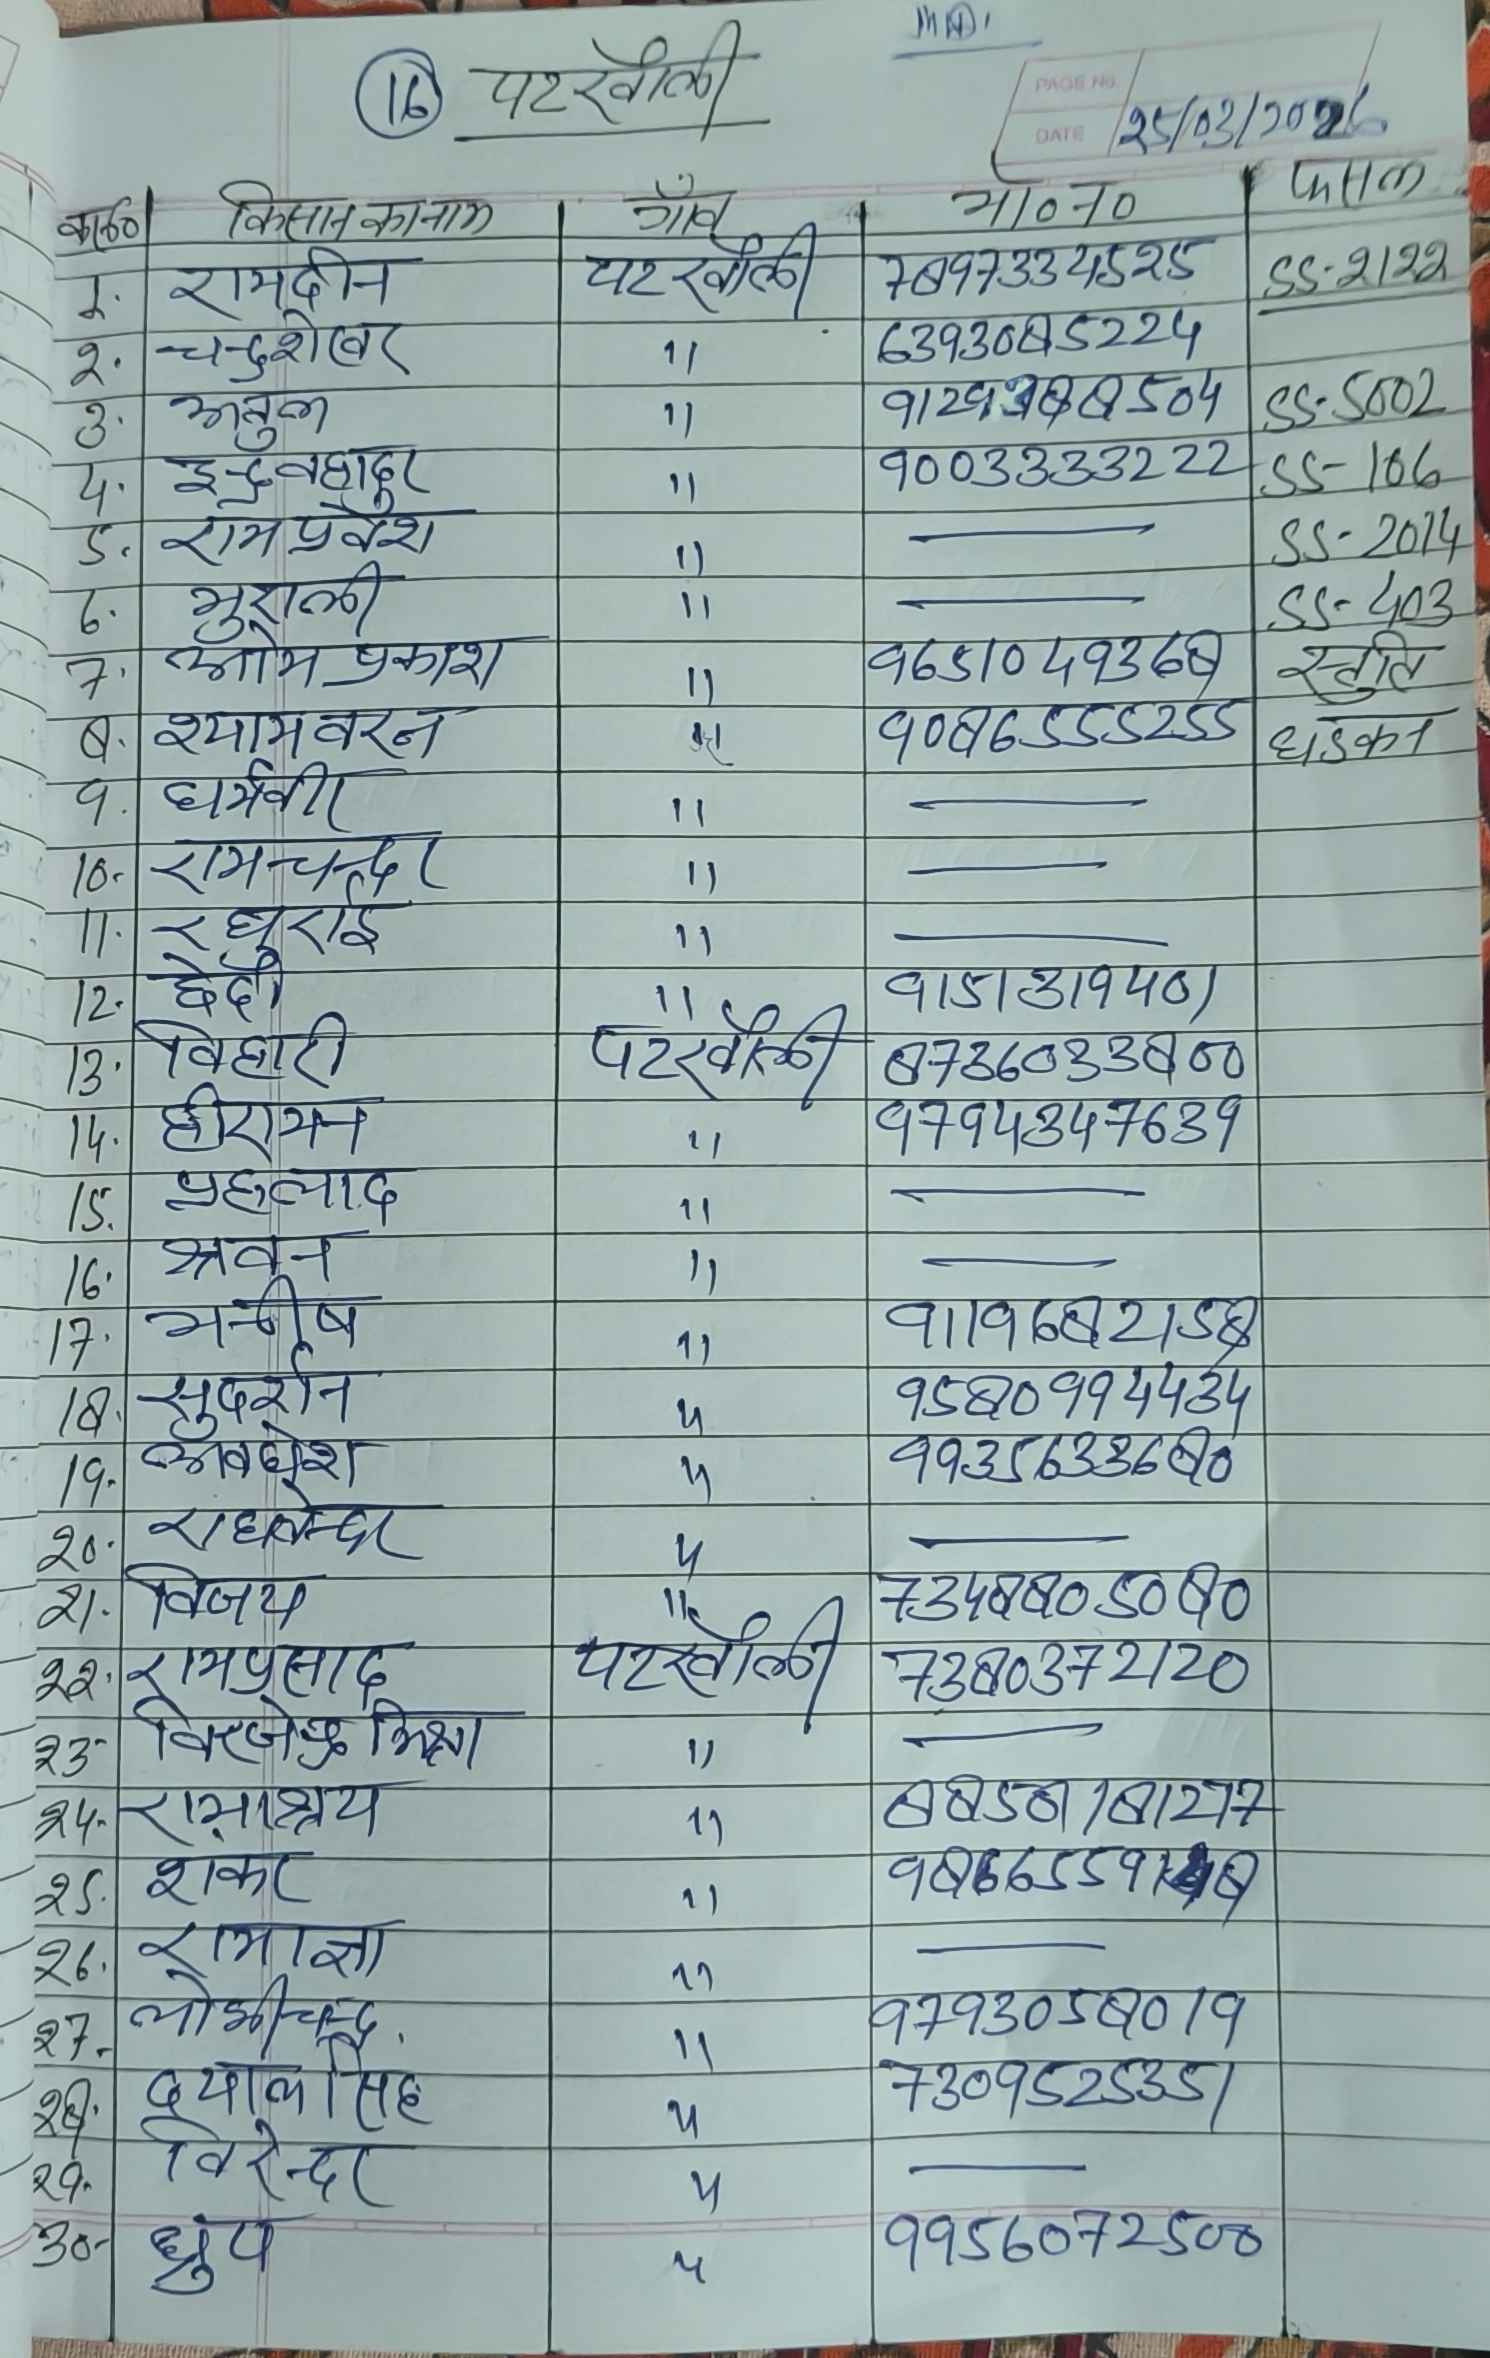 16 पटखौली
PAGE NO.
DATE 25/03/2026
क्र०सं० किसान का नाम गाँव मो० न० फसल
1. रामदीन पटखौली 7897334525 SS-2122
2. चन्द्रशेखर " 6393085224
3. अतुल " SS-5002
4. इन्द्रबहादुर " 9003333222 SS-106
5. राम प्रवेश " — SS-2014
6. मुराली " — SS-403
7. ओम प्रकाश " 9651049368 स्तुति
8. श्यामवरन " 9086555255 धडकन
9. धर्मवीर " —
10. रामचन्दर " —
11. रघुराई " —
12. छेदी " 9151319401
13. विहारी पटखौली 8736033800
14. हीरामन " 9794347639
15. प्रहलाद " —
16. श्रवन " —
17. मनीष " 9119682158
18. सुदर्शन " 9580994434
19. अवधेश " 9935633680
20. राघवेन्दर " —
21. विजय " 7348805080
22. रामप्रसाद पटखौली 7380372120
23. विरजेन्द्र मिश्रा " —
24. रामाश्रय " 8858181277
25. शंकर "
26. रामाज्ञा " —
27. " 9793058019
28. दयाल सिंह " 7309525351
29. विरेन्दर " —
30. ध्रुप " 9956072500